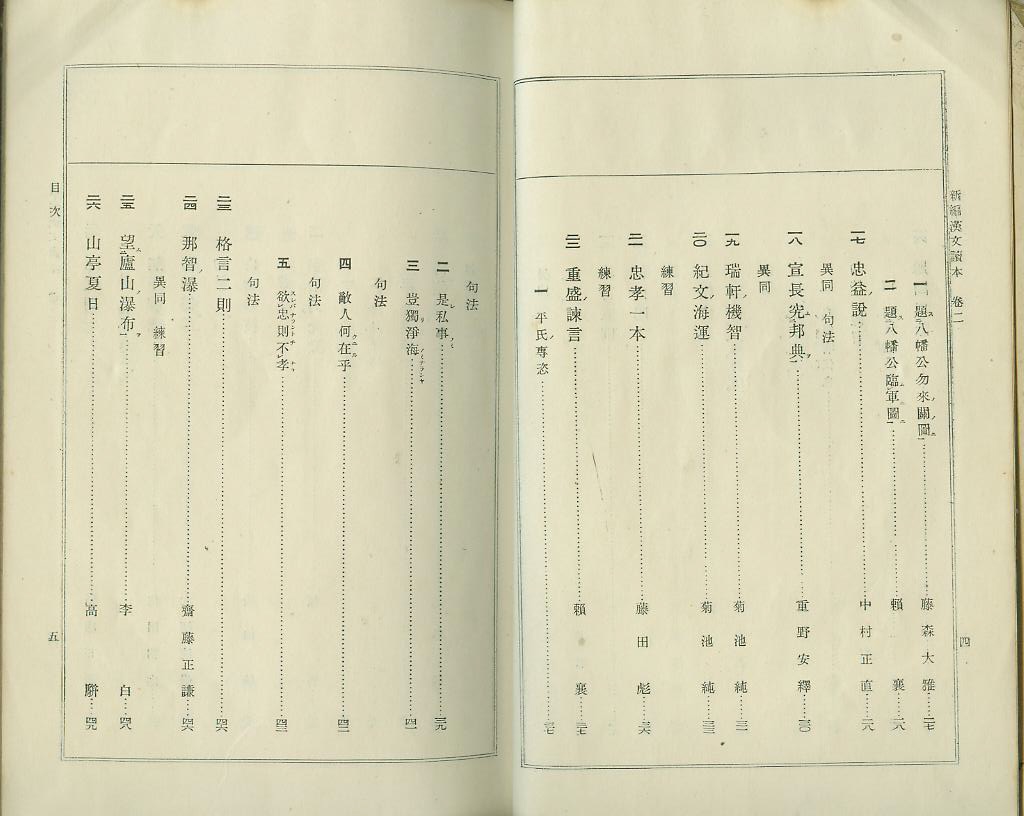 新編漢文讀本 卷二
四
一 題八幡公勿來關圖……藤森大雅……二七
二 題八幡公臨軍圖……賴襄……二八
一七 忠益說……中村正直……二八
異同 句法
一八 宣長究邦典……重野安繹……三〇
異同
一九 瑞軒機智……菊池純……三一
二〇 紀文海運……菊池純……三三
練習
二一 忠孝一本……藤田彪……三六
練習
二二 重盛諫言……賴襄……三七
一 平氏專恣……三七
句法
二 是私事……三九
三 豈獨淨海……四一
句法
四 敵人何在乎……四二
句法
五 欲忠則不孝……四三
句法
二三 格言二則……四六
二四 那智瀑……齋藤正謙……四六
異同 練習
二五 望廬山瀑布……李白……四八
二六 山亭夏日……高駢……四九
目次
五